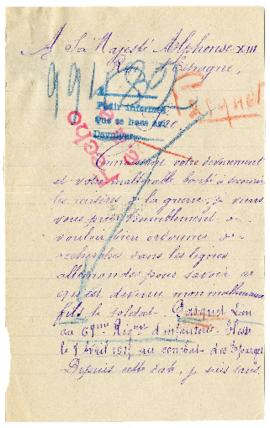 A Sa Majesté Alphonse XIII
Roi d'Espagne,
Pedir informes
Que se haga así
Connaissant votre dévouement
et votre inlassable bonté à secourir
les victimes de la guerre, je viens
vous prier humblement de
vouloir bien ordonner des
recherches dans les lignes
allemandes pour savoir ce
qu'est devenu mon malheureux
fils le soldat Pasquet
au 67ème Régiment d'infanterie. Blessé
le 5 Avril 1915 au combat des Eparges
Depuis cette date, je suis sans